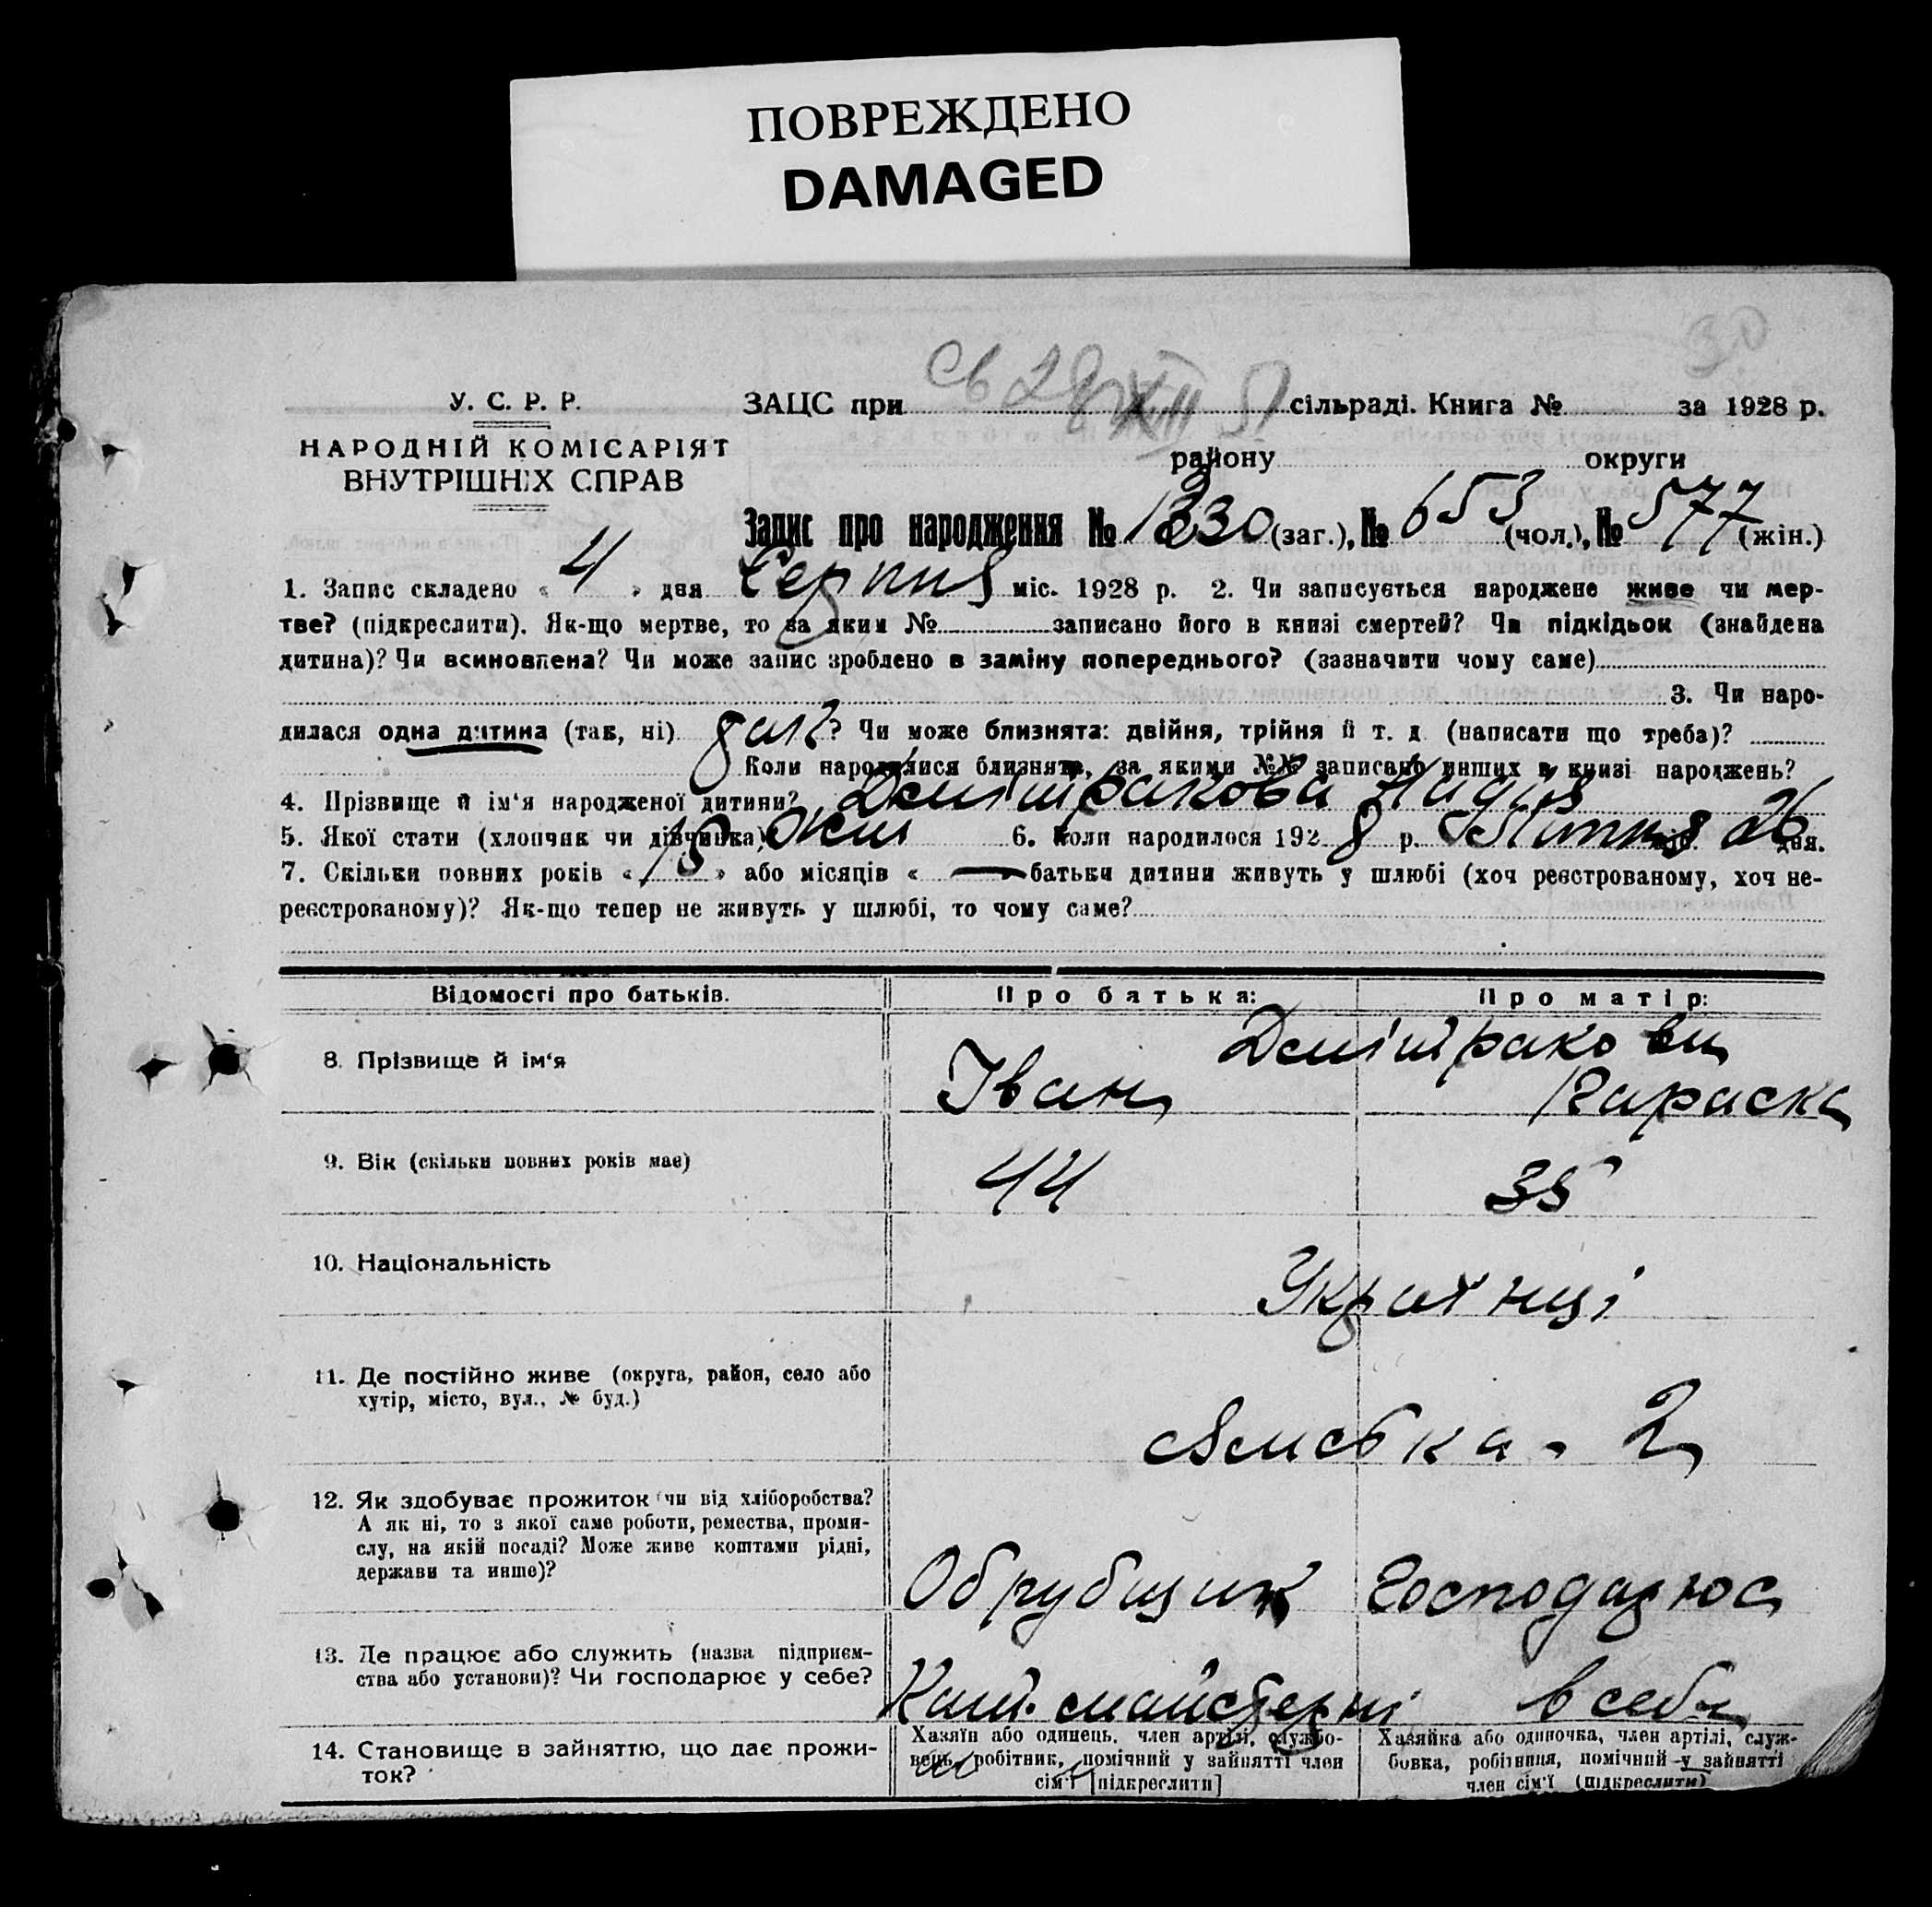 ПОВРЕЖДЕНО
DAMAGED
30
св 28 XII 51
У. С. Р. Р.
НАРОДНІЙ КОМІСАРІЯТ
ВНУТРІШНІХ СПРАВ
ЗАЦС при сільраді. Книга № за 1928 р.
району округи
Запис про народження № 1230 (заг.), № 653 (чол.), № 577 (жін.)
1. Запис складено « 4 » дня Серпня міс. 1928 р. 2. Чи записується народжене живе чи мер-
тве? (підкреслити). Як-що мертве, то за яким № записано його в книзі смертей? Чи підкідьок (знайдена
дитина)? Чи всиновлена? Чи може запис зроблено в заміну попереднього? (зазначити чому саме)
3. Чи наро-
дилася одна дитина (так, ні) ? Чи може близнята: двійня, трійня й т. д. (написати що треба)?
Коли народилися близнята, за якими №№ записано инших в книзі народжень?
4. Прізвище й ім'я народженої дитини? Дмітракова Надія
5. Якої стати (хлопчик чи дівчинка) жін 6. Коли народилося 1928 р. Липня 26 дня.
7. Скільки повних років « 18 » або місяців « — батьки дитини живуть у шлюбі (хоч реєстрованому, хоч не-
реєстрованому)? Як-що тепер не живуть у шлюбі, то чому саме?
Відомості про батьків. Про батька: Про матір:
8. Прізвище й ім'я Дмітракови
Іван Параска
9. Вік (скільки повних років має) 44 35
10. Національність Українці
11. Де постійно живе (округа, район, село або
хутір, місто, вул., № буд.)
Ямська - 2
12. Як здобуває прожиток (чи від хліборобства?
А як ні, то з якої саме роботи, ремества, проми-
слу, на якій посаді? Може живе коштами рідні,
держави та инше)?
Обрубщик Господарює
13. Де працює або служить (назва підприєм-
ства або установи)? Чи господарює у себе?
майстерні в себе
14. Становище в зайняттю, що дає прожи-
ток?
Хазяїн або одинець, член артілі, службо-
вець, робітник, помічний у зайнятті член
сім'ї [підкреслити]
Хазяйка або одиночка, член артілі, служ-
бовка, робітниця, помічний у зайнятті
член сім'ї (підкреслити)